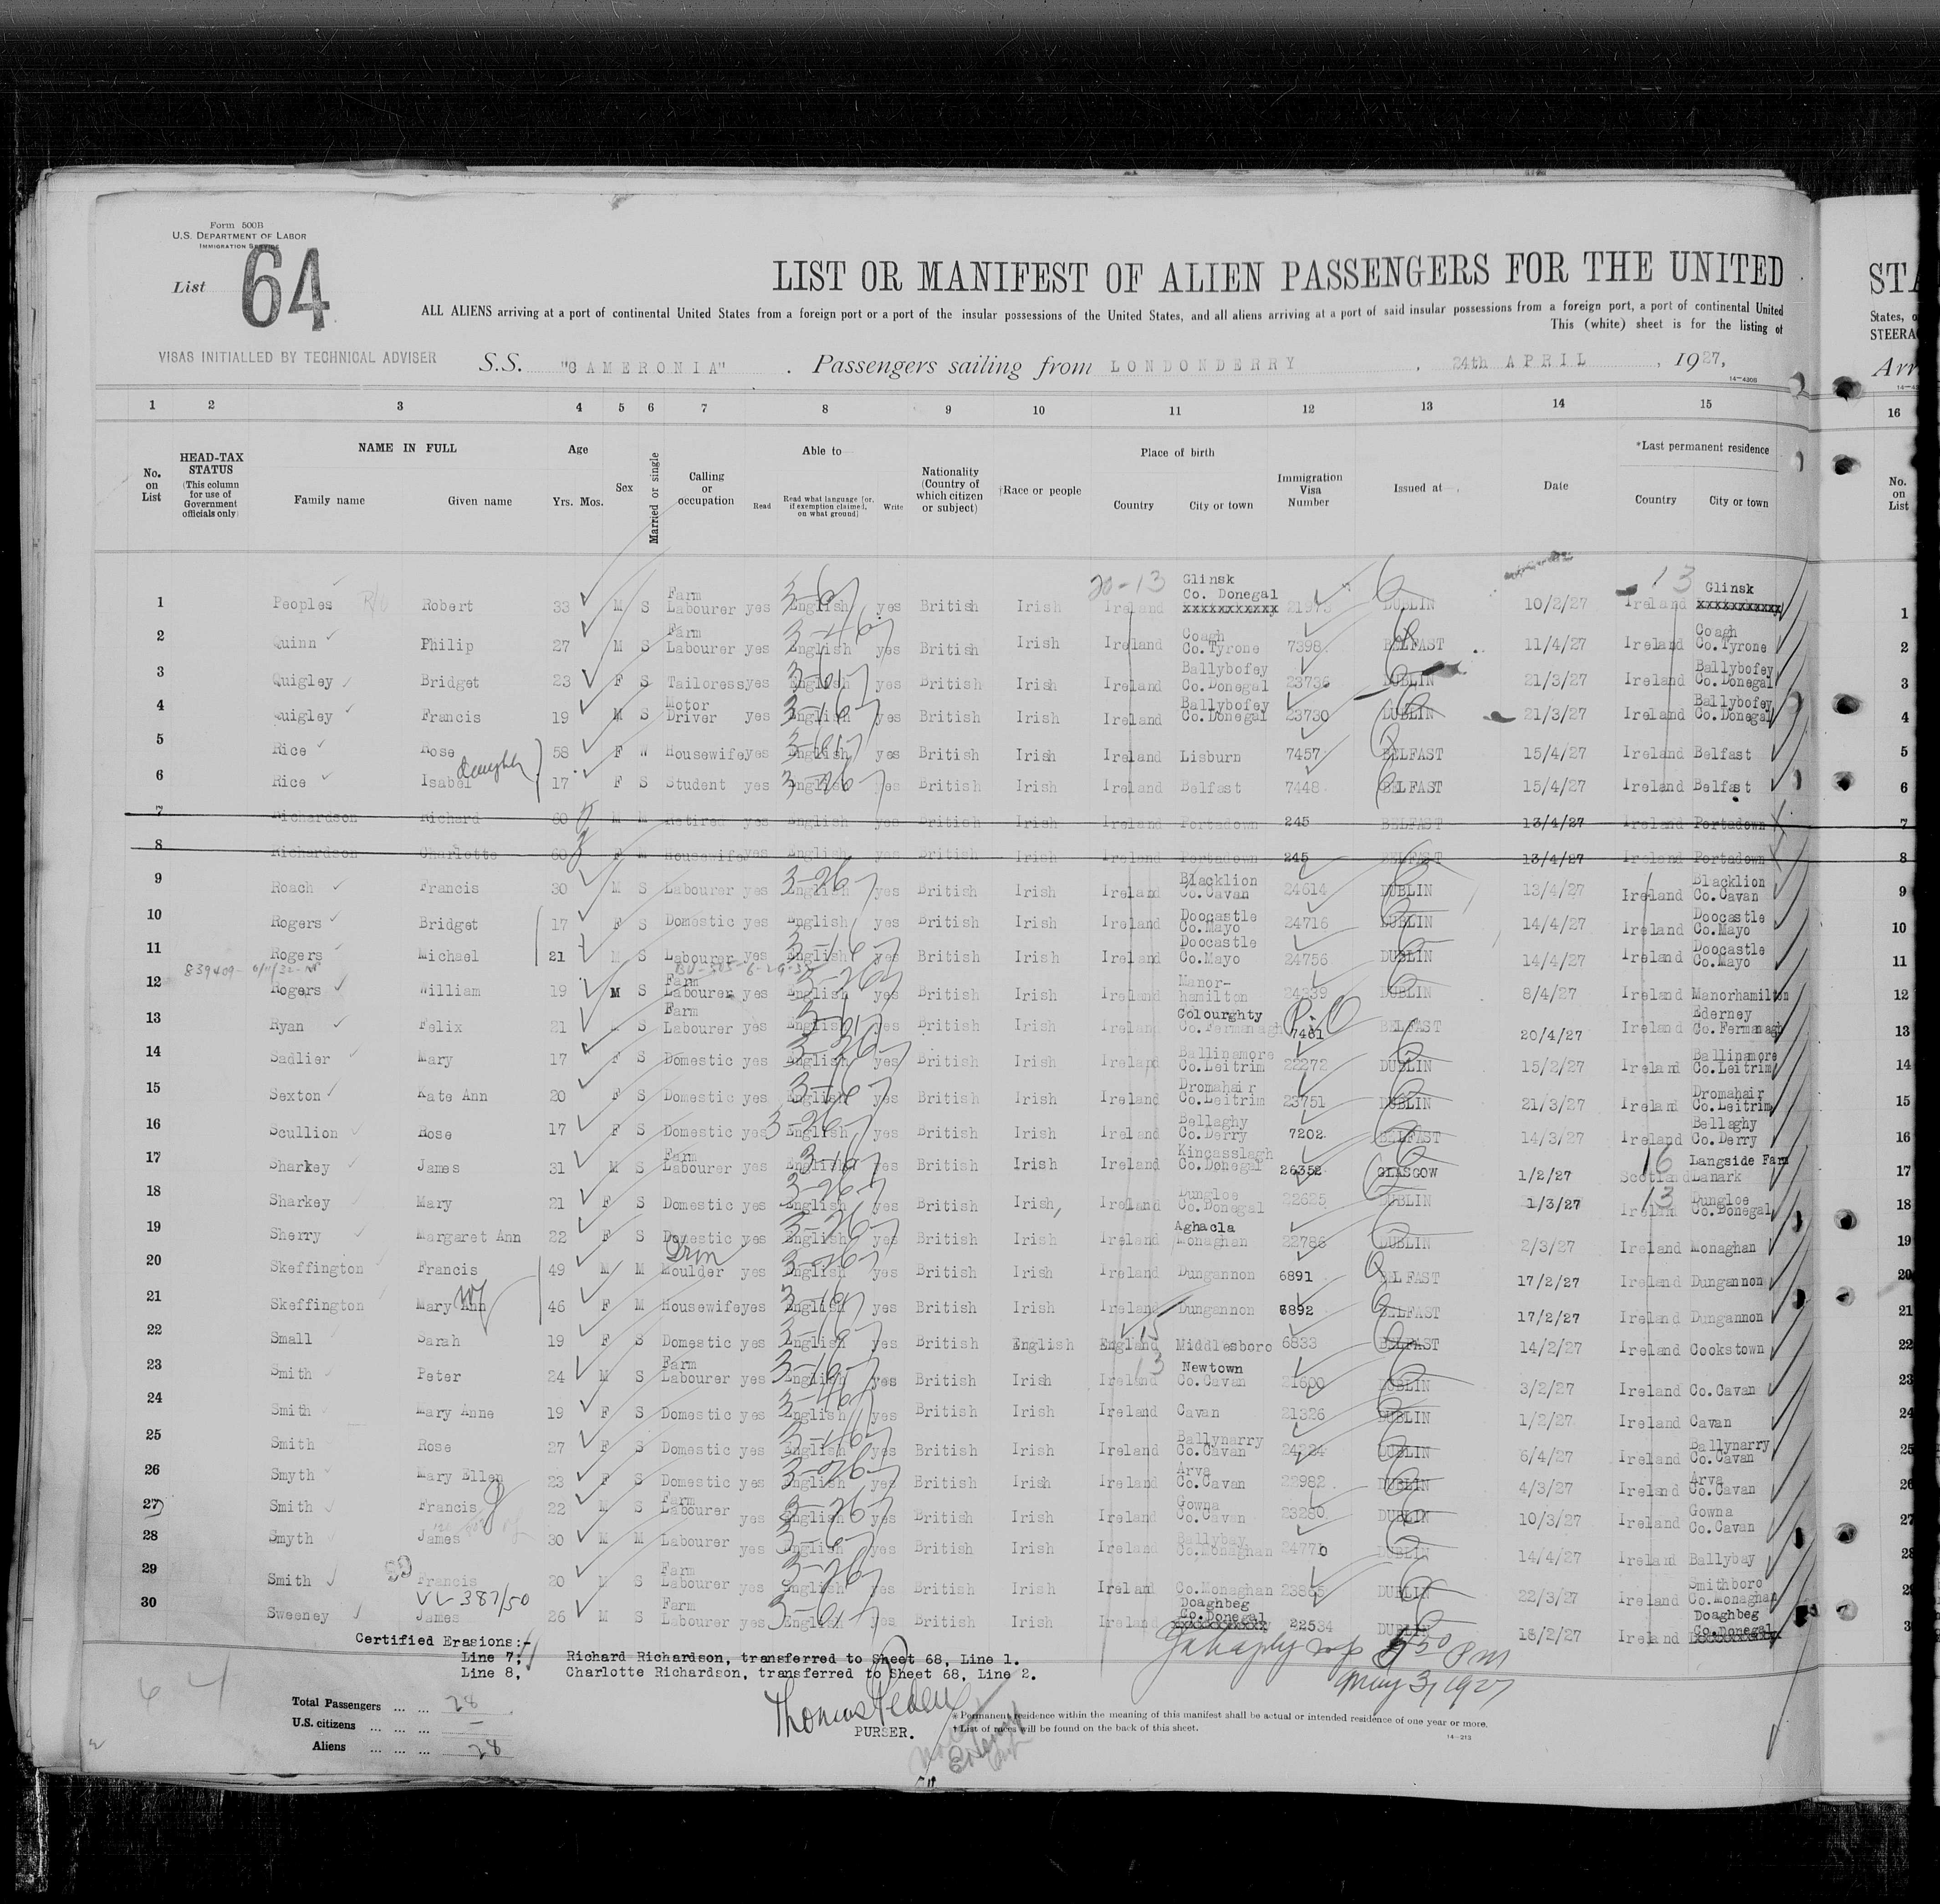 Form 500B
U.S. DEPARTMENT OF LABOR
IMMIGRATION SERVICE
List 64
LIST OR MANIFEST OF ALIEN PASSENGERS FOR THE UNITED
STA
ALL ALIENS arriving at a port of continental United States from a foreign port or a port of the insular possessions of the United States, and all aliens arriving at a port of said insular possessions from a foreign port, a port of continental United
States, o
This (white) sheet is for the listing of
STEERA
VISAS INITIALLED BY TECHNICAL ADVISER
S.S. "CAMERONIA". Passengers sailing from LONDONDERRY, 24th APRIL, 1927,
Arr
14-4308
1 2 3 4 5 6 7 8 9 10 11 12 13 14 15 16
No. on List
HEAD-TAX STATUS (This column for use of Government officials only)
NAME IN FULL Family name Given name
Age Yrs. Mos.
Sex
Married or single
Calling or occupation
Able to Read Read what language (or, if exemption claimed, on what ground) Write
Nationality (Country of which citizen or subject)
†Race or people
Place of birth Country City or town
Immigration Visa Number
Issued at
Date
*Last permanent residence Country City or town
No. on List
20-13 13
1 Peoples Robert 33 M S Farm Labourer yes English yes British Irish Ireland Glinsk Co. Donegal xxxxxxxxxxx DUBLIN 10/2/27 Ireland Glinsk xxxxxxxxxxx 1
2 Quinn Philip 27 M S Farm Labourer yes English yes British Irish Ireland Coagh Co.Tyrone 7398 BELFAST 11/4/27 Ireland Coagh Co.Tyrone 2
3 Quigley Bridget 23 F S Tailoress yes English yes British Irish Ireland Ballybofey Co.Donegal 23736 DUBLIN 21/3/27 Ireland Ballybofey Co.Donegal 3
4 Quigley Francis 19 M S Motor Driver yes English yes British Irish Ireland Ballybofey Co.Donegal 23730 DUBLIN 21/3/27 Ireland Ballybofey Co.Donegal 4
5 Rice Rose 58 F W Housewife yes English yes British Irish Ireland Lisburn 7457 BELFAST 15/4/27 Ireland Belfast 5
6 Rice Isabel daughter 17 F S Student yes English yes British Irish Ireland Belfast 7448 BELFAST 15/4/27 Ireland Belfast 6
7 Richardson Richard 60 M M Retired yes English yes British Irish Ireland Portadown 245 BELFAST 13/4/27 Ireland Portadown 7
8 Richardson Charlotte 60 F M Housewife yes English yes British Irish Ireland Portadown 245 BELFAST 13/4/27 Ireland Portadown 8
9 Roach Francis 30 M S Labourer yes English yes British Irish Ireland Blacklion Co.Cavan 24614 DUBLIN 13/4/27 Ireland Blacklion Co.Cavan 9
10 Rogers Bridget 17 F S Domestic yes English yes British Irish Ireland Doocastle Co.Mayo 24716 DUBLIN 14/4/27 Ireland Doocastle Co.Mayo 10
11 Rogers Michael 21 M S Labourer yes English yes British Irish Ireland Doocastle Co.Mayo 24756 DUBLIN 14/4/27 Ireland Doocastle Co.Mayo 11
839409
12 Rogers William 19 M S Farm Labourer yes English yes British Irish Ireland Manor-hamilton DUBLIN 8/4/27 Ireland Manorhamilton 12
13 Ryan Felix 21 M S Farm Labourer yes English yes British Irish Ireland Colourghty Co.Fermanagh 7461 BELFAST 20/4/27 Ireland Ederney Co.Fermanagh 13
14 Sadlier Mary 17 F S Domestic yes English yes British Irish Ireland Ballinamore Co.Leitrim 22272 DUBLIN 15/2/27 Ireland Ballinamore Co.Leitrim 14
15 Sexton Kate Ann 20 F S Domestic yes English yes British Irish Ireland Dromahair Co.Leitrim 23751 DUBLIN 21/3/27 Ireland Dromahair Co.Leitrim 15
16 Scullion Rose 17 F S Domestic yes English yes British Irish Ireland Bellaghy Co.Derry 7202 BELFAST 14/3/27 Ireland Bellaghy Co.Derry 16
17 Sharkey James 31 M S Farm Labourer yes English yes British Irish Ireland Kincasslagh Co.Donegal 26352 GLASGOW 1/2/27 16 Scotland Langside Farm Lanark 17
18 Sharkey Mary 21 F S Domestic yes English yes British Irish, Ireland Dungloe Co.Donegal 22625 DUBLIN 1/3/27 13 Ireland Dungloe Co.Donegal 18
19 Sherry Margaret Ann 22 F S Domestic yes English yes British Irish Ireland Aghacla Monaghan 22786 DUBLIN 2/3/27 Ireland Monaghan 19
20 Skeffington Francis 49 M M Iron Moulder yes English yes British Irish Ireland Dungannon 6891 BELFAST 17/2/27 Ireland Dungannon 20
21 Skeffington Mary Ann wf 46 F M Housewife yes English yes British Irish Ireland Dungannon 6892 BELFAST 17/2/27 Ireland Dungannon 21
22 Small Sarah 19 F S Domestic yes English yes British English England Middlesboro 6833 BELFAST 14/2/27 Ireland Cookstown 22
23 Smith Peter 24 M S Farm Labourer yes English yes British Irish Ireland 13 Newtown Co.Cavan 21600 DUBLIN 3/2/27 Ireland Co.Cavan 23
24 Smith Mary Anne 19 F S Domestic yes English yes British Irish Ireland Cavan 21326 DUBLIN 1/2/27 Ireland Cavan 24
25 Smith Rose 27 F S Domestic yes English yes British Irish Ireland Ballynarry Co.Cavan 24224 DUBLIN 6/4/27 Ireland Ballynarry Co.Cavan 25
26 Smyth Mary Ellen 23 F S Domestic yes English yes British Irish Ireland Arva Co.Cavan 22982 DUBLIN 4/3/27 Ireland Arva Co.Cavan 26
27 Smith Francis 22 M S Farm Labourer yes English yes British Irish Ireland Gowna Co.Cavan 23280 DUBLIN 10/3/27 Ireland Gowna Co.Cavan 27
28 Smyth James 30 M M Labourer yes English yes British Irish Ireland Ballybay Co.Monaghan 24770 DUBLIN 14/4/27 Ireland Ballybay 28
29 Smith Francis 20 M S Farm Labourer yes English yes British Irish Ireland Co.Monaghan 23865 DUBLIN 22/3/27 Ireland Smithboro Co.Monaghan
30 Sweeney James 26 M S Farm Labourer yes English yes British Irish Ireland Doaghbeg Co.Donegal xxxxxxxxxxx 22534 DUBLIN 18/2/27 Ireland Doaghbeg Co.Donegal
Certified Erasions:-
Line 7, Richard Richardson, transferred to Sheet 68, Line 1.
Line 8, Charlotte Richardson, transferred to Sheet 68, Line 2.
May 3, 1927
64
Total Passengers ... ... 28
U.S. citizens ... ... ... —
Aliens ... ... ... 28
Thomas Peden
PURSER.
* Permanent residence within the meaning of this manifest shall be actual or intended residence of one year or more.
† List of races will be found on the back of this sheet.
14-213